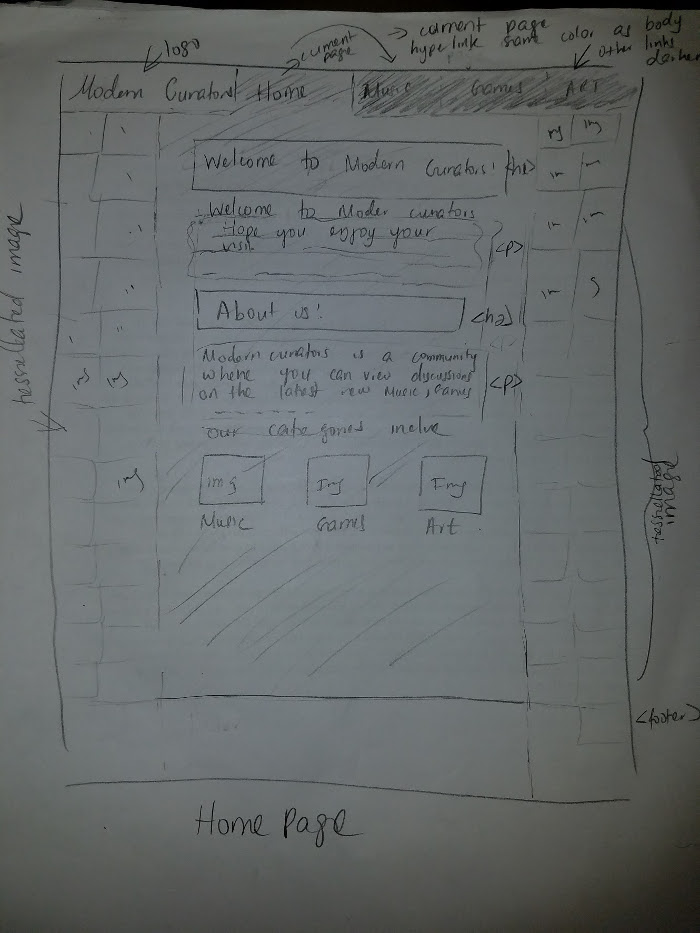 logo
current page
current page
hyperlink same color as body
other links
darker
Modern Curators Home Music Games ART
img
Welcome to Modern Curators! <h1>
Welcome to Moder curators
Hope you enjoy your
visit
<p>
About us! <h2>
Modern curators is a community
where you can view discussions
on the latest new Music, Games
<p>
our categories inclve
img Img Img
Music Games Art
tessellated image
tessellated
image
<footer>
Home Page